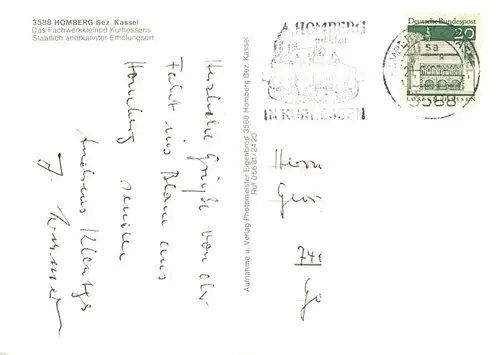 3588 HOMBERG Bez. Kassel
Das Fachwerkkleinod Kurhessens
Staatlich anerkannter Erholungsort
Herzliche Grüße von der
Fahrt ins Blaue aus
Homberg senden
Andreas
Aufnahme u. Verlag Photomeister Eigenbrod 3588 Homberg Bez. Kassel
Ruf 0 56 81/24 20
HOMBERG
IN KURHESSEN
Deutsche Bundespost
20
LORSCH/HESSEN
3588
Herrn
Geor
74